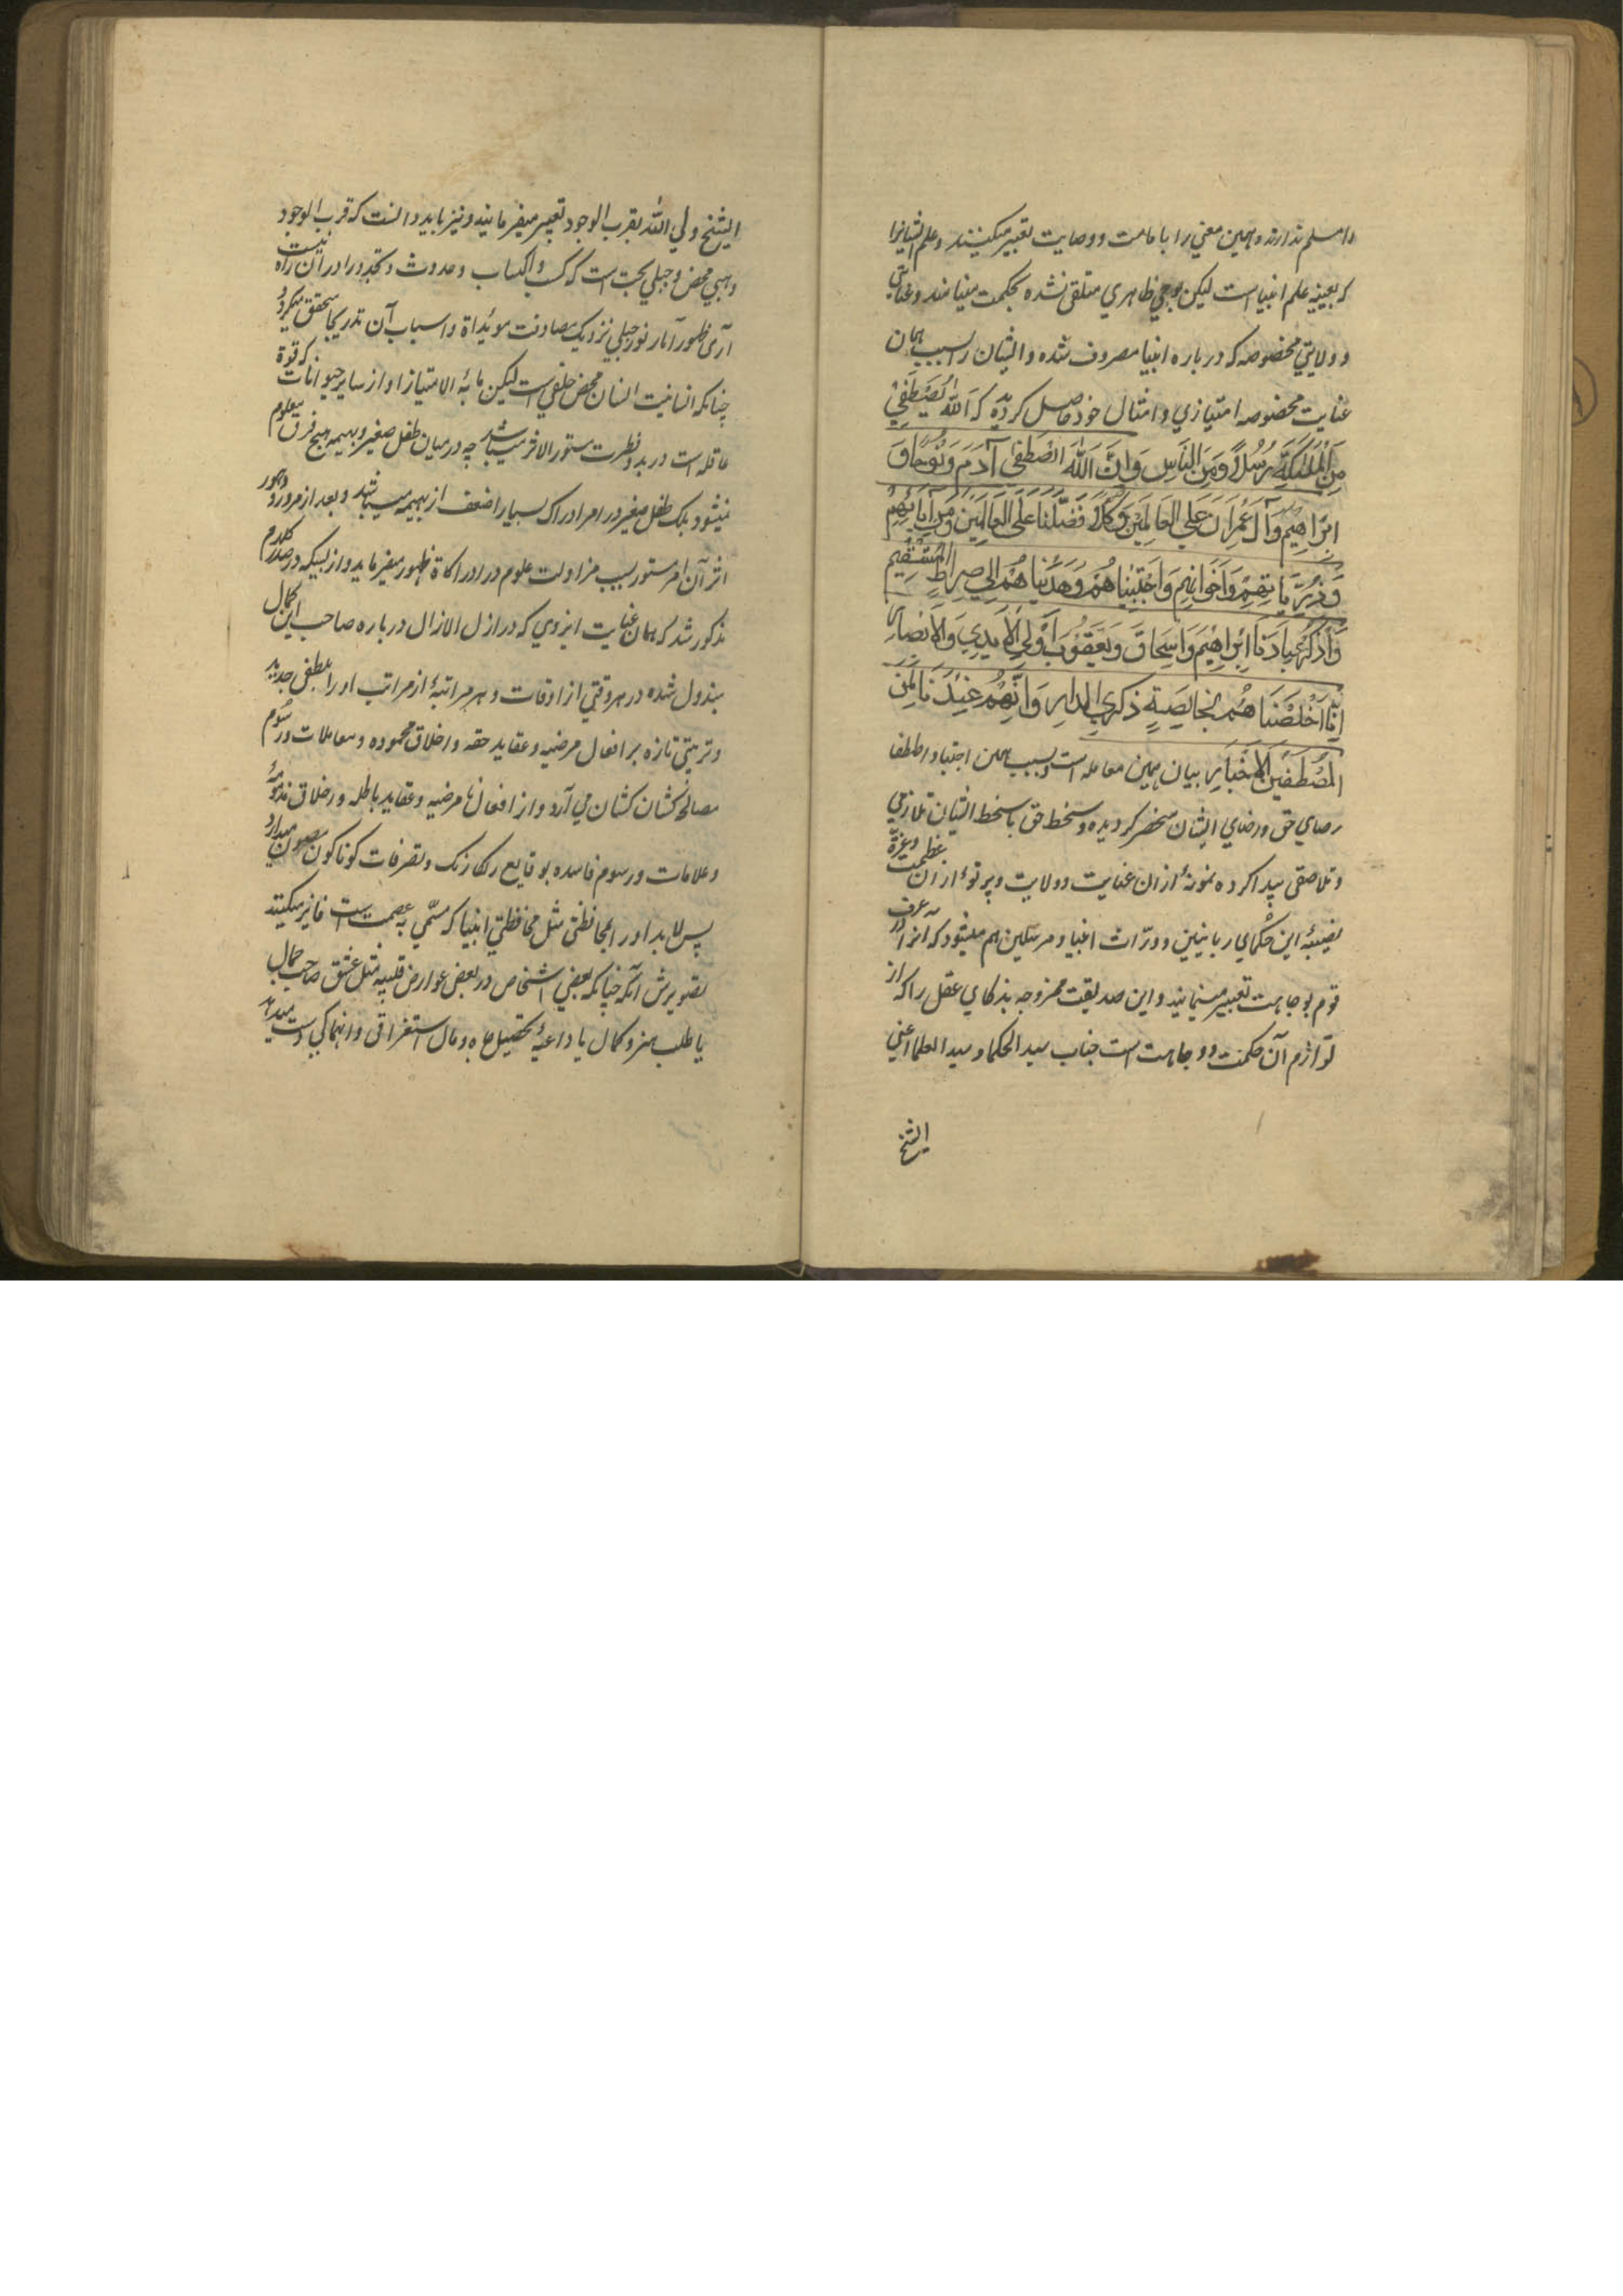 را مسلم ندارند و همین معنی را بامامت و وصایت تعبیر میکنند و علم ایشانرا
که بعینه علم انبیا است لیکن بوحی ظاهری متلقی نشده بحکمت مینامند و عنایتی
و ولایتی مخصوصه که درباره انبیا مصروف شده و ایشان را بسبب همان
عنایت مخصوصه امتیازی در امثال خود حاصل گردیده که اَللهُ یَصْطَفِیْ
مِنَ الْمَلٰئِکَةِ رُسُلًا وَمِنَ النَّاسِ وَاِنَّ اللهَ اصْطَفٰی آدَمَ وَنُوْحًا وَ آلَ
اِبْرَاهِیْمَ وَآلَ عِمْرَانَ عَلَی الْعَالَمِیْنَ وَکُلًّا فَضَّلْنَا عَلَی الْعَالَمِیْنَ وَمِنْ آبَائِهِمْ
وَذُرِّیَّاتِهِمْ وَاِخْوَانِهِمْ وَاجْتَبَیْنَاهُمْ وَهَدَیْنَاهُمْ اِلٰی صِرَاطٍ الْمُسْتَقِیْمِ
وَاذْکُرْ عِبَادَنَا اِبْرَاهِیْمَ وَاِسْحَاقَ وَیَعْقُوْبَ اُوْلِی الْاَیْدِیْ وَالْاَبْصَارِ
اِنَّا اَخْلَصْنَاهُمْ بِخَالِصَةٍ ذِکْرَی الدَّارِ وَاِنَّهُمْ عِنْدَنَا لَمِنَ
الْمُصْطَفَیْنَ الْاَخْیَارِ بیان همین معامله است و بسبب همین اجتبا و اصطفا
رضای حق در رضای ایشان منحصر گردیده و سخط حق با سخط ایشان تلازمی
و تلاصقی پیدا کرده نمونهٔ ازان عنایت و ولایت و پرتوهٔ ازان عظمت و عزة
نصیبهٔ این حکمای ربانیین و ورّاث انبیا و مرسلین هم میشود که آنرا در عرف
قوم بوجاهت تعبیر مینمایند و این صدیقیت ممزوجه بذکای عقل را که از
لوازم آن حکمت و وجاهت است جناب سید الحکما و سید العلما اعنی
الشیخ
الشیخ ولی الله بقرب الوجود تعبیر میفرمایند و نیز باید دانست که قرب الوجود
وهبی محض و جبلی بحت است که کسب و اکتساب و حدوث و تجدد را دران راه نیست
آری ظهور آثار نور جبلی نزدیک مصادفت مویداة و اسباب آن تدریجا متحقق میگردد
چنانکه انسانیت انسان محض خلقی است لیکن ما به الامتیاز او از سایر حیوانات که قوة
عاقله است در بدو فطرت مستور الاثر میباشد چه درمیان طفل صغیر و بهیمه هیچ فرق معلوم
نمیشود بلکه طفل صغیر در امر ادراک بسیار اضعف از بهیمه میباشد و بعد از مرور دهور
اثر آن امر مستور بسبب مزاولت علوم در ادراکات ظهور میفرماید و از بسکه در صدر کلام
مذکور شد که همان عنایت ایزدی که در ازل الازال درباره صاحب این کمال
مبذول شده در هر وقتی از اوقات و هر مرتبهٔ از مراتب او را بلطفی جدید
و تربیتی تازه بر افعال مرضیه و عقاید حقه و اخلاق محموده و معاملات و رسوم
مصالحه کشان کشان می آرد و از افعال نامرضیه و عقاید باطله و اخلاق مذمومه
و علامات و رسوم فاسده بوقایع رنگارنگ و تصرفات گوناگون مصون میدارد
پس لابد او را بمحافظتی مثل محافظتی انبیا که مسمّی به عصمت است فایز میکنند
تصویرش آنکه چنانکه بعضی اشخاص در بعض عوارض قلبیه مثل عشق صاحب جمال
یا طلب هنر و کمال یا داعیهٔ تحصیل جاه و مال استغراقی و انهماکی دست میدهد